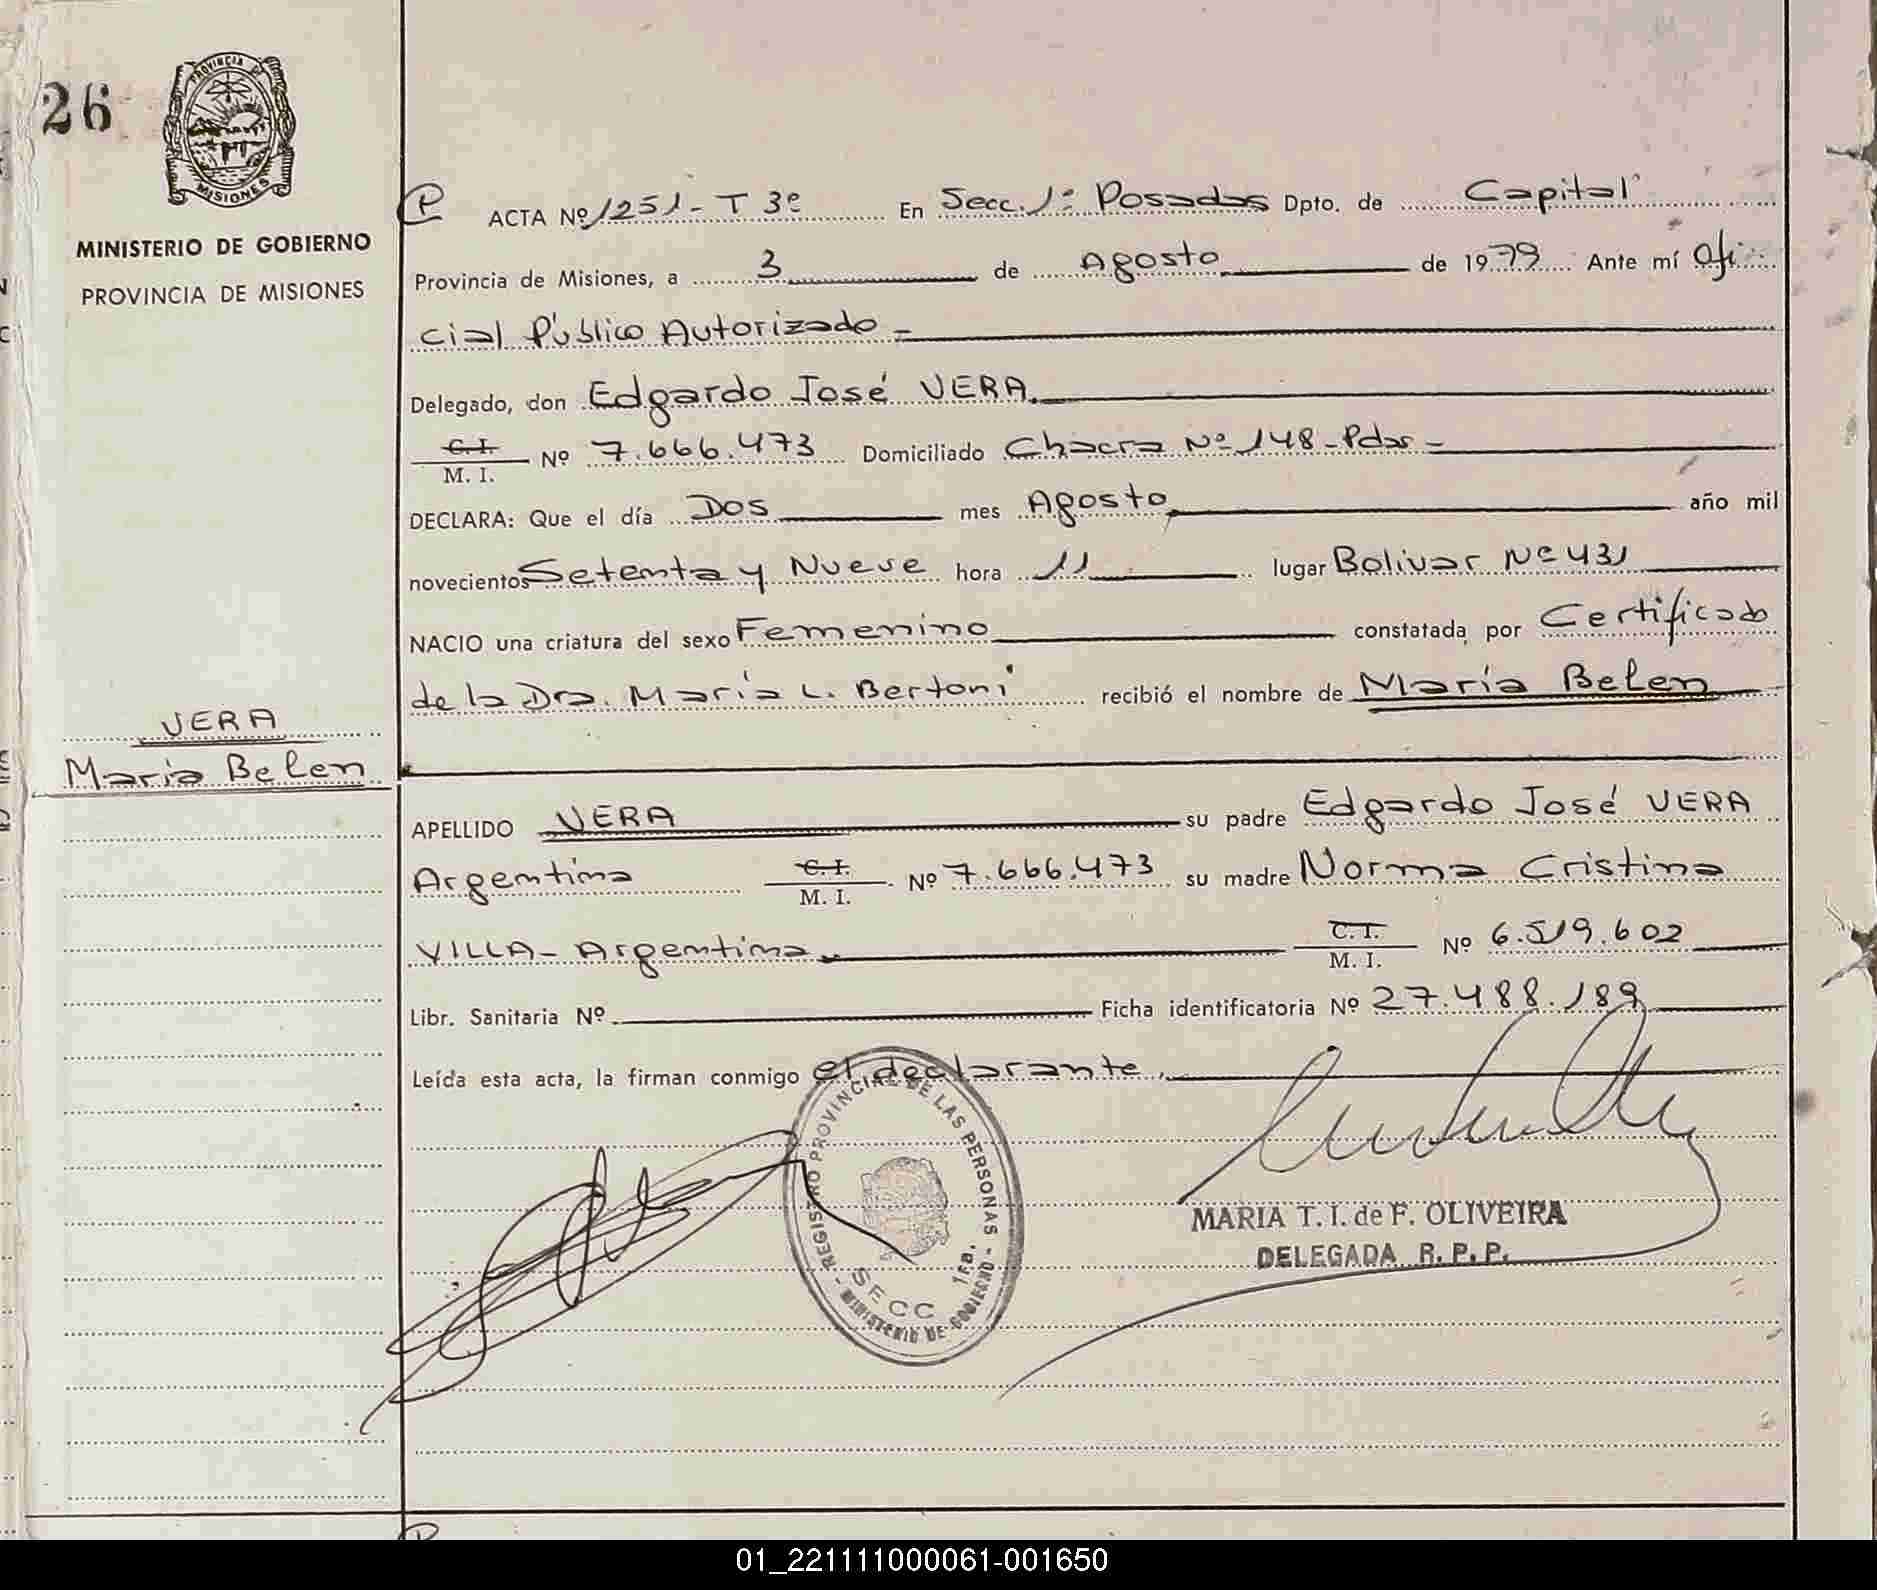 26
PROVINCIA DE
MISIONES
MINISTERIO DE GOBIERNO
PROVINCIA DE MISIONES
P ACTA Nº 1251 - T 3º En Secc. 1ª Posadas Dpto. de Capital
Provincia de Misiones, a 3 de Agosto de 1979 Ante mí Ofi
cial Público Autorizado -
Delegado, don Edgardo José VERA
C.I.
M. I. Nº 7.666.473 Domiciliado Chacra Nº 148 - Pdas -
DECLARA: Que el día Dos mes Agosto año mil
novecientos Setenta y Nueve hora 11 lugar Bolivar Nº 431
NACIO una criatura del sexo Femenino constatada por Certificado
de la Dra. María L. Bertoni recibió el nombre de María Belen
VERA
María Belen
APELLIDO VERA su padre Edgardo José VERA
Argentina C.I. M. I. Nº 7.666.473 su madre Norma Cristina
VILLA - Argentina C.I. M. I. Nº 6.519.602
Libr. Sanitaria Nº Ficha identificatoria Nº 27.488.189
Leída esta acta, la firman conmigo el declarante.
REGISTRO PROVINCIAL DE LAS PERSONAS - MINISTERIO DE GOBIERNO -
SECC 1ra.
MARIA T. I. de F. OLIVEIRA
DELEGADA R. P. P.
01_221111000061-001650